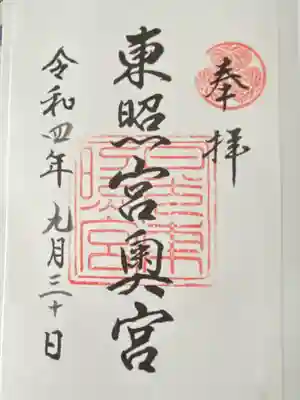 奉拝
東照宮奥宮
令和四年九月三十日